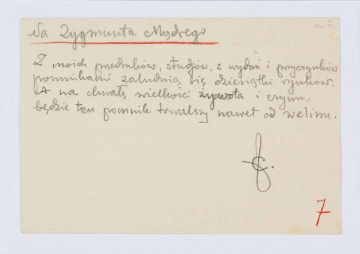 Na Zygmunta Mądrego
Z moich przedruków, studjów, z wydań i przyczynków
pomnikami zaludnią się dziesiątki rynków.
A na chwałę wielkości żywota i czynu,
będzie ten pomnik trwalszy nawet od welinu.
7